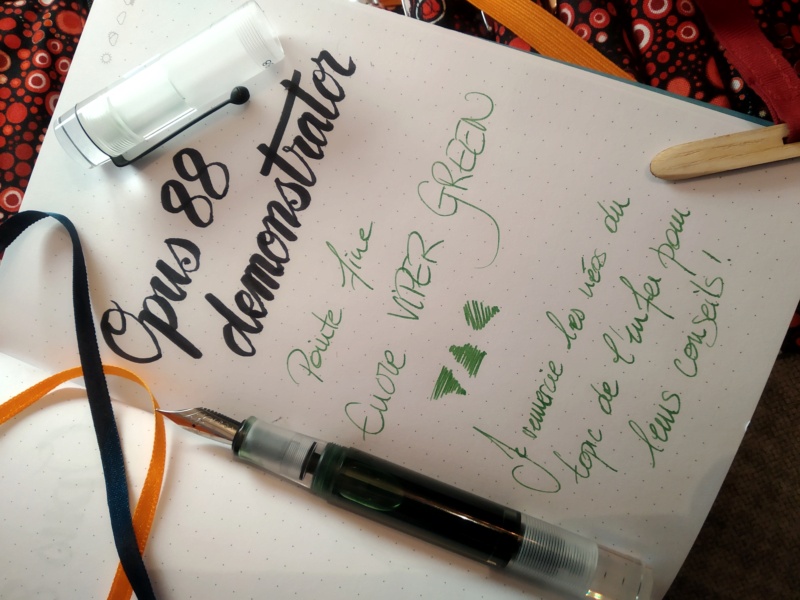 Opus 88
demonstrator
Pointe fine
Encre VIPER GREEN
Je remercie les nées du
topic de l'enfer pour
leurs conseils !